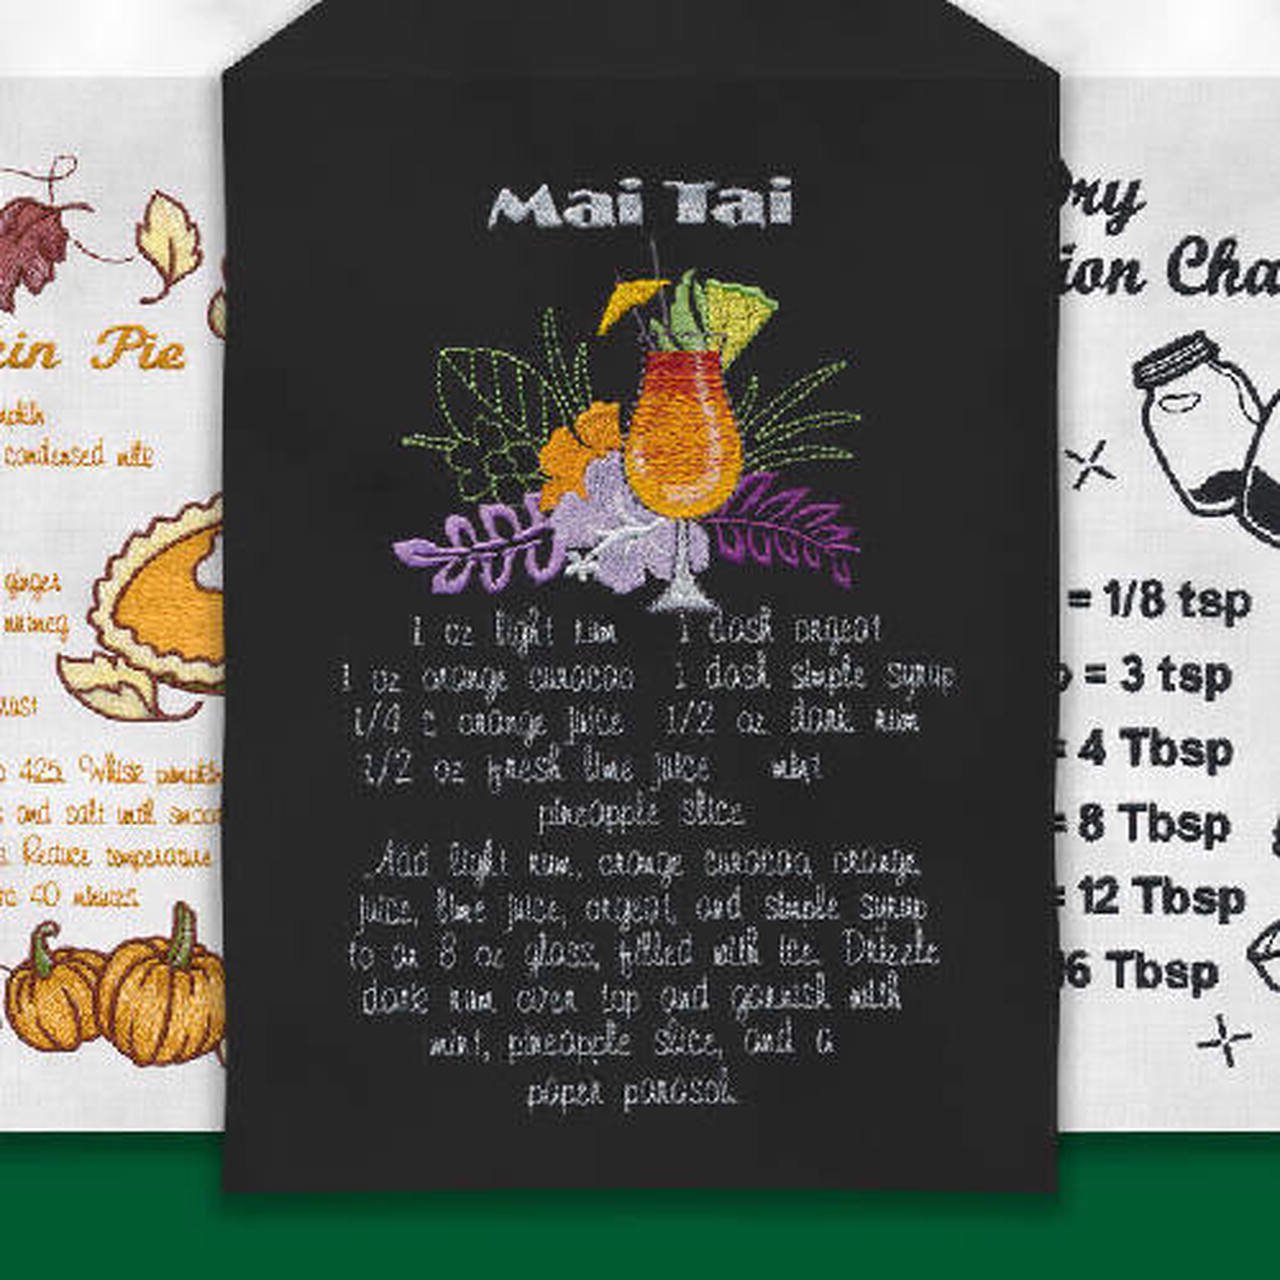 Mai Tai
1 oz light rum 1 dash orgeat
1 oz orange curacao 1 dash simple syrup
1/4 c orange juice 1/2 oz dark rum
1/2 oz fresh lime juice mint
pineapple slice
Add light rum, orange curacao, orange
juice, lime juice, orgeat, and simple syrup
to an 8 oz glass, filled with ice. Drizzle
dark rum over top and garnish with
mint, pineapple slice, and a
paper parasol.
Pie
condensed milk
ginger
nutmeg
425. Whisk
and salt until
Reduce temperature
40 minutes.
= 1/8 tsp
= 3 tsp
= 4 Tbsp
= 8 Tbsp
= 12 Tbsp
16 Tbsp